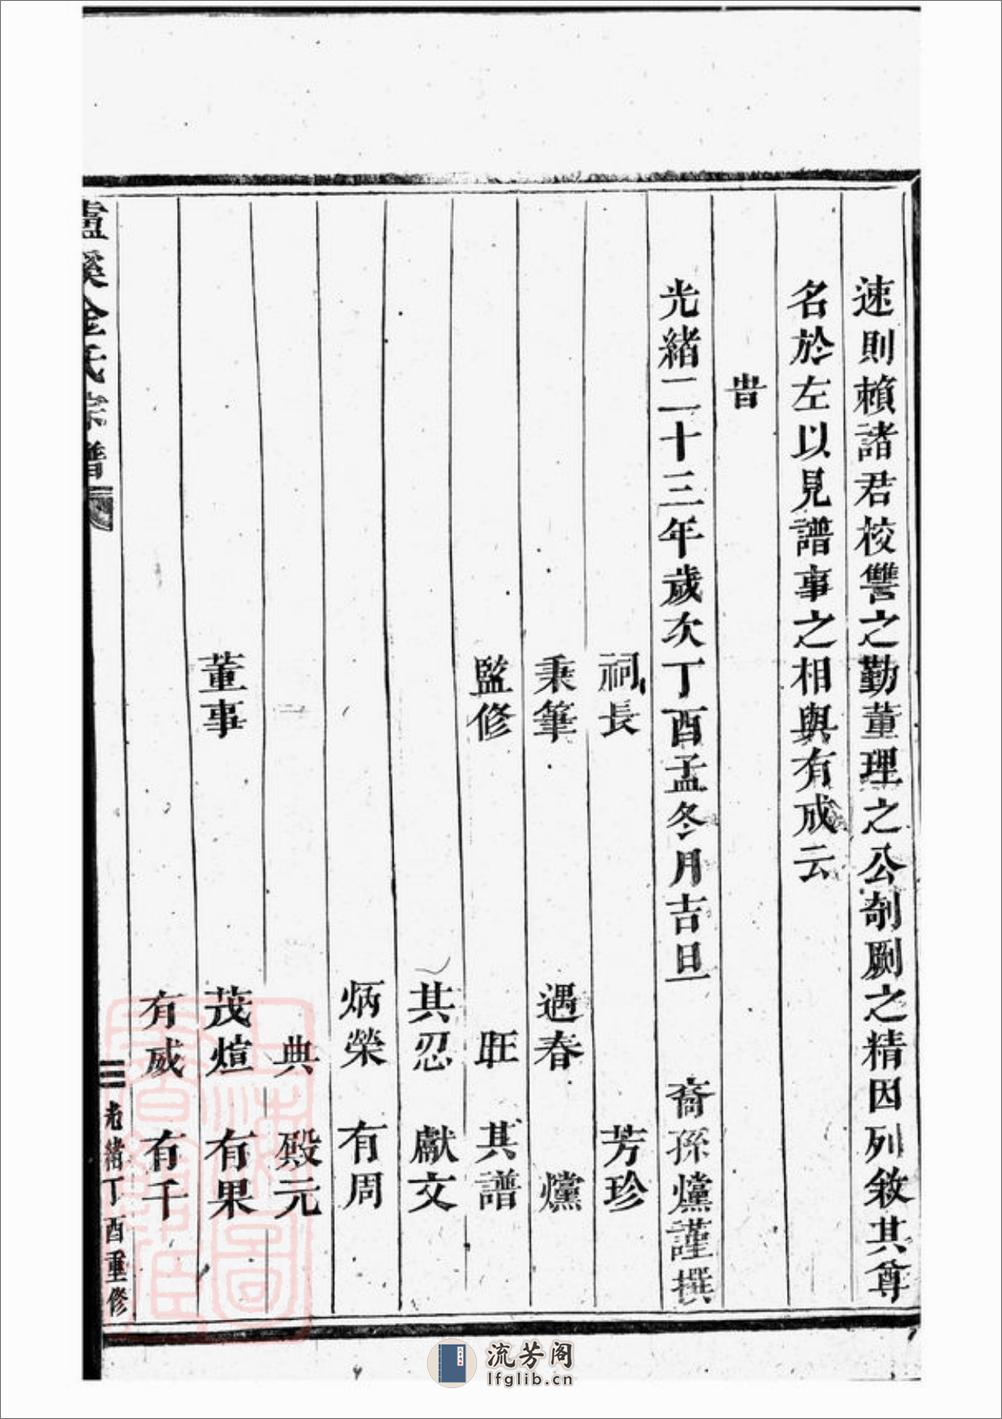 速則賴諸君校讐之勤董理之公剞劂之精因列敘其尊
名於左以見譜事之相與有成云
旹
光緒二十三年歲次丁酉孟冬月吉旦 裔孫爣謹撰
祠長 芳珍
秉筆 遇春 爣
監修 旺 其譜
其忍 獻文
炳榮 有周
典 殿元
董事 茂煊 有果
有威 有千
盧溪金氏宗譜
三 光緒丁酉重修
流芳阁
lfglib.cn